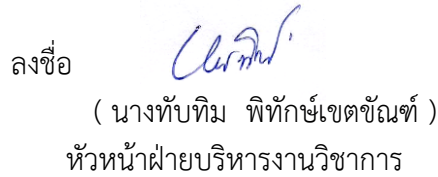 ลงชื่อ
( นางทับทิม พิทักษ์เขตขัณฑ์ )
หัวหน้าฝ่ายบริหารงานวิชาการ